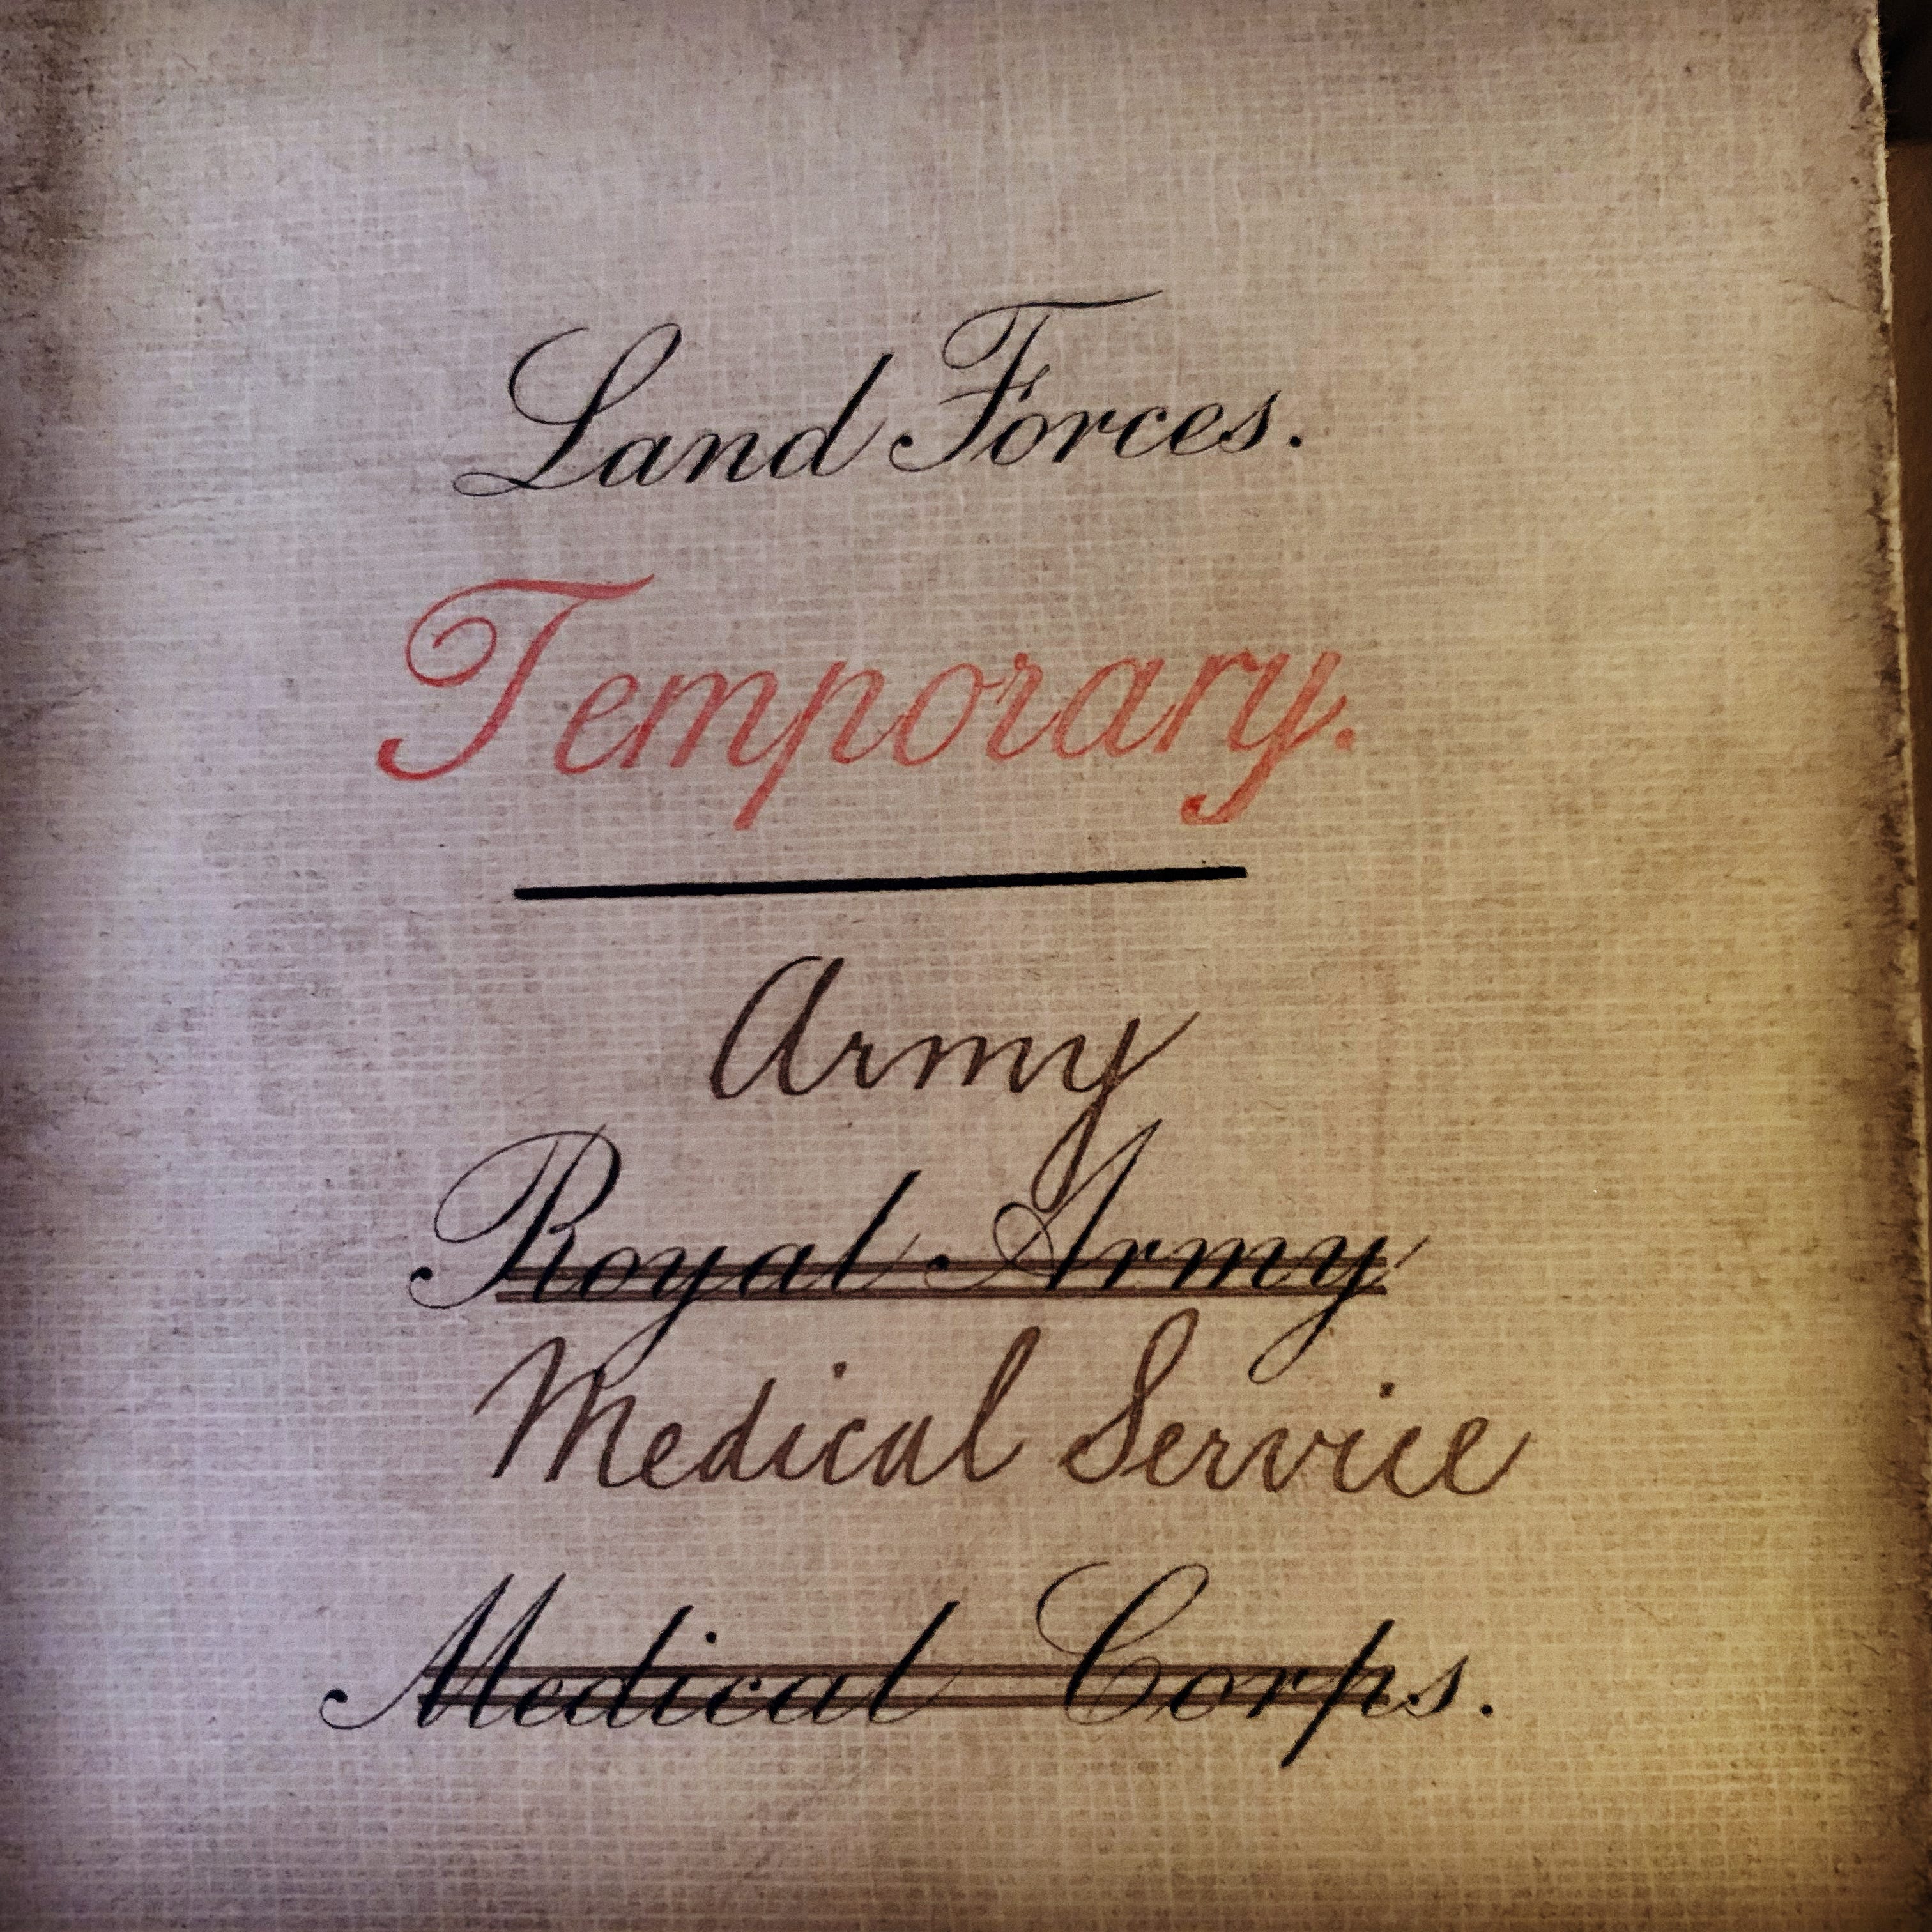 Land Forces.
Temporary.
Army
Royal Army
Medical Service
Medical Corps.